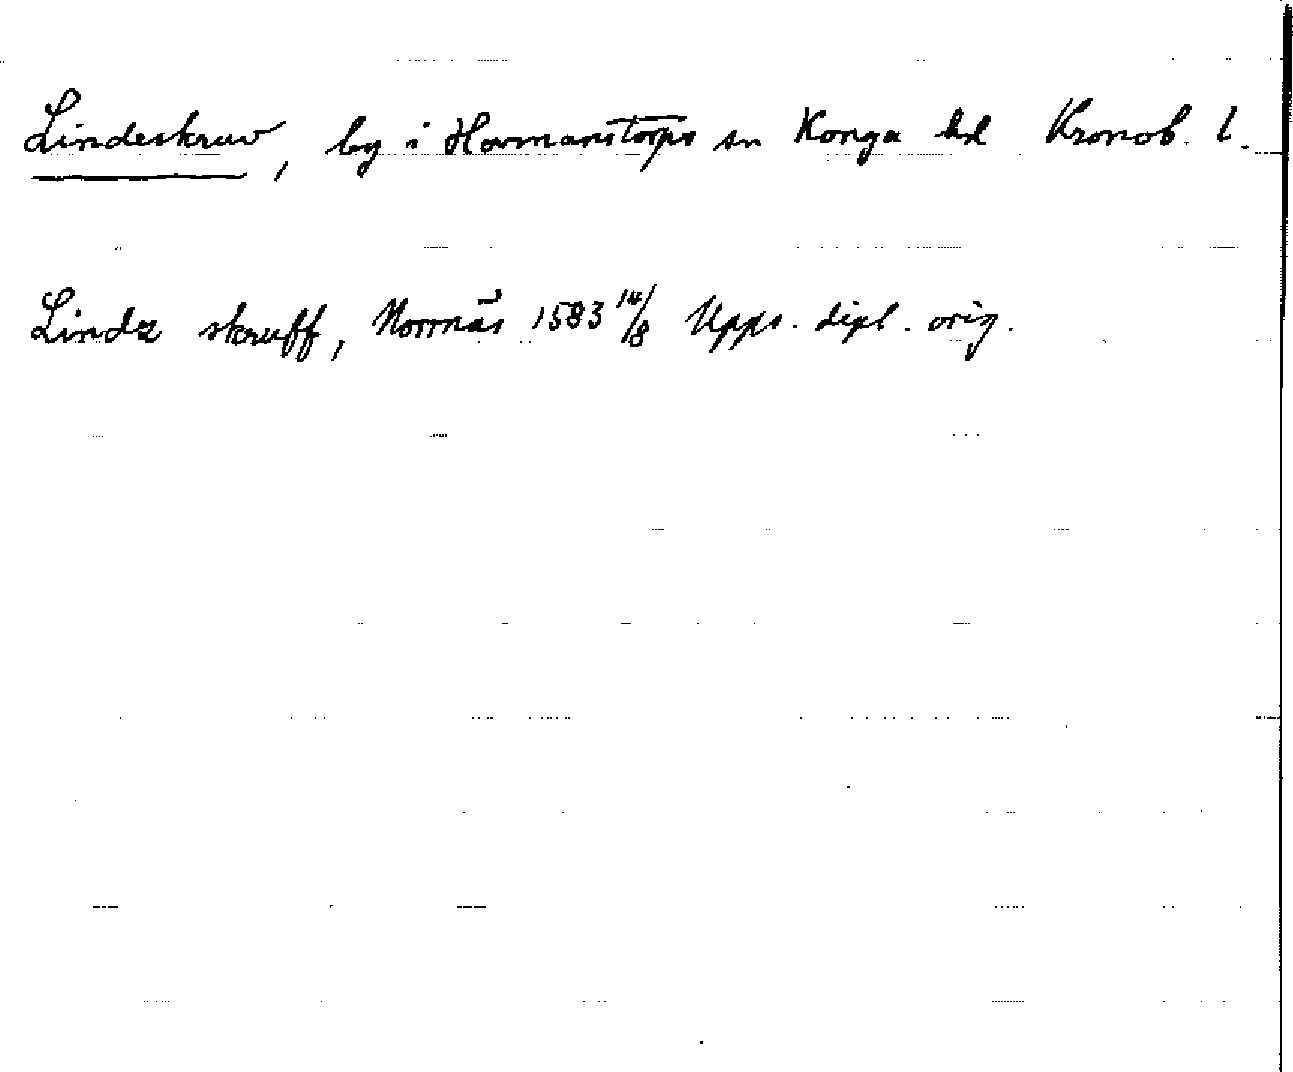 Lindeskruv, by i Hovmanstorps sn Konga hd Kronob. l.
Linda skruff, Norrnäs 1583 14/8 Upps. dipl. orig.